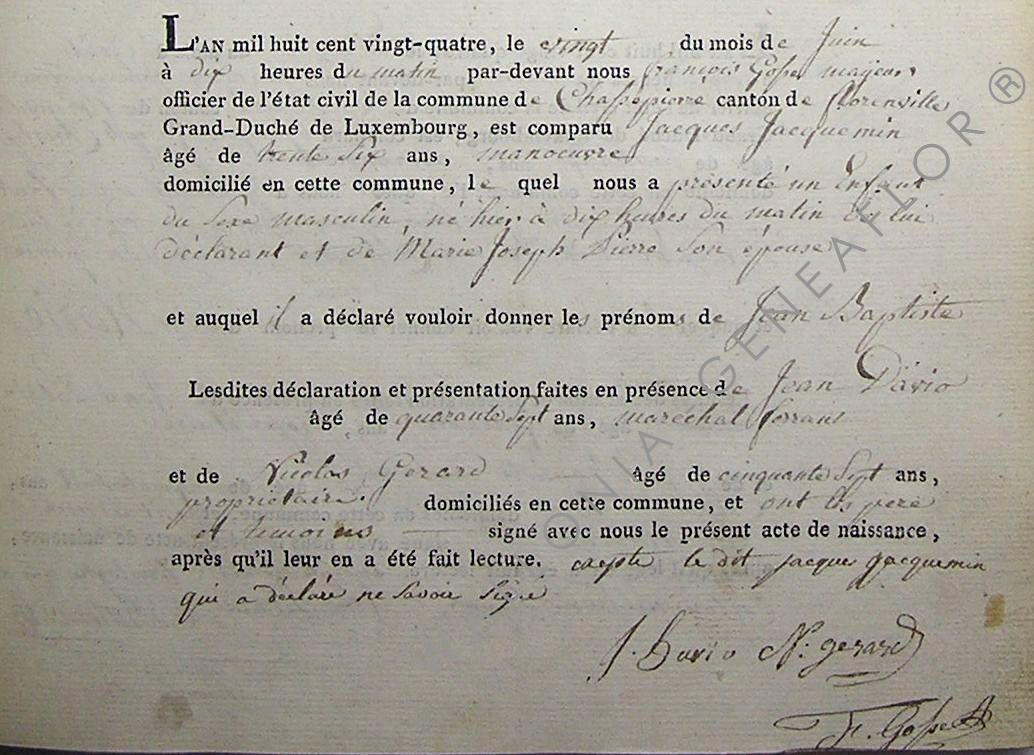 L'AN mil huit cent vingt-quatre, le vingt du mois de Juin
à dix heures du matin par-devant nous françois Gosse mayeur
officier de l'état civil de la commune de Chassepierre canton de florenville
Grand-Duché de Luxembourg, est comparu Jacques Jacquemin
âgé de trente Six ans, manoeuvre
domicilié en cette commune, le quel nous a présenté un Enfant
du Sexe masculin né hier à dix heures du matin de lui
déclarant et de Marie Joseph Pierre Son épouse
et auquel il a déclaré vouloir donner les prénoms de Jean Baptiste
Lesdites déclaration et présentation faites en présence de Jean Davio
âgé de quarante Sept ans, marechal ferrans
et de Nicolas Gerard âgé de cinquante Sept ans,
propriétaire. domiciliés en cette commune, et ont les pere
et temoins signé avec nous le présent acte de naissance,
après qu'il leur en a été fait lecture. cxepte le dit jacques jacquemin
qui a déclaré ne Savoir Signé
J. Davio N: gerard
F. Gosse
ONIA GENEAFLOR ®